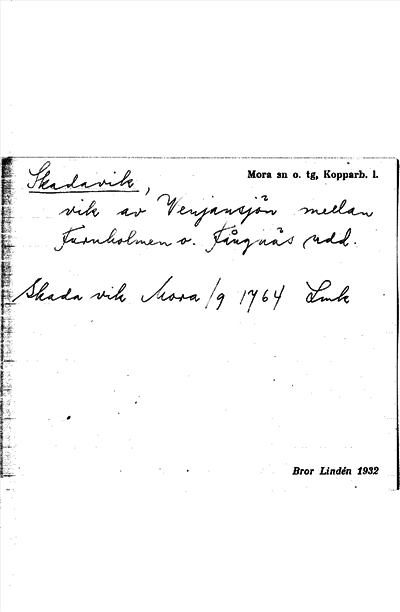 Skadavik,
Mora sn o. tg, Kopparb. l.
vik av Venjansjön mellan
Furnholmen o. Fångnäs udd.
Skada vik Mora 1/9 1764 Lmk
Bror Lindén 1932